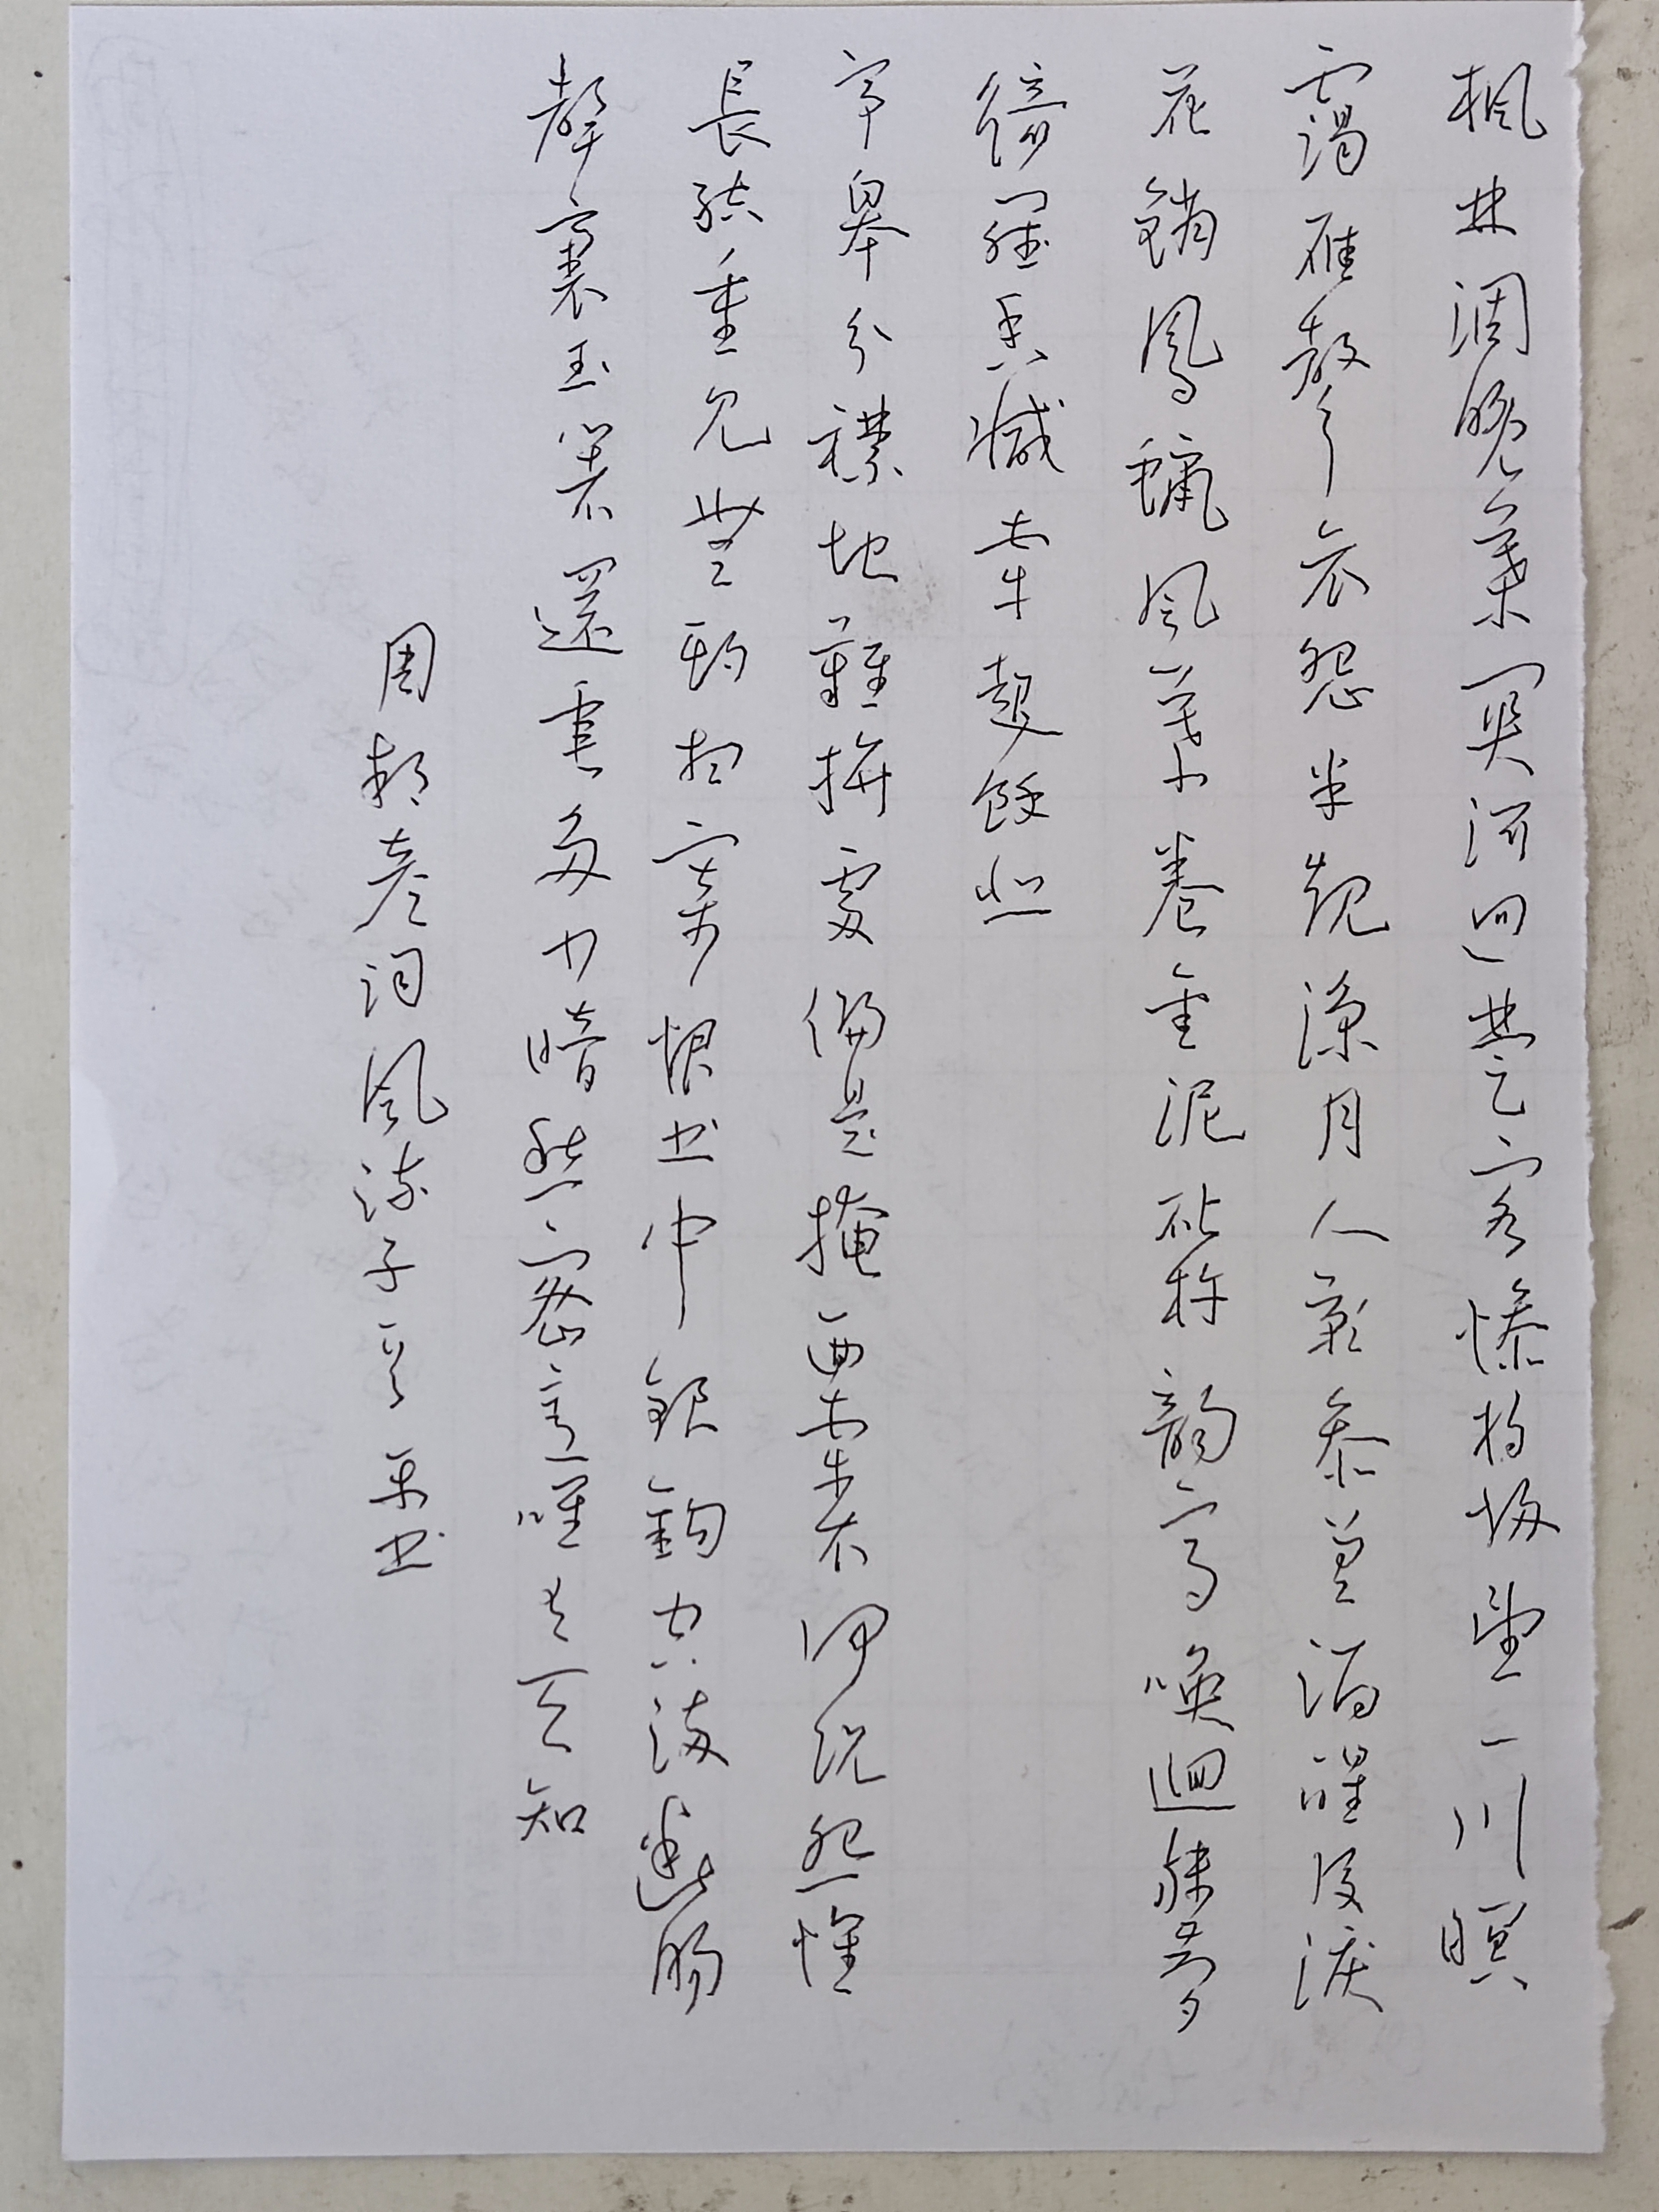 楓林凋晚葉關河迥楚客慘將歸望一川暝
靄雁聲哀怨半規涼月人影參差酒醒後淚
花銷鳳蠟風幕卷金泥砧杵韻高喚迴殘夢
綺羅香減牽起餘悲
亭皋分襟地難拚處偏是掩面牽衣何況怨懷
長結重見無期想寄恨书中銀鉤空滿斷腸
聲裏玉箸還垂多少暗愁密意唯有天知
周邦彥詞風流子 书